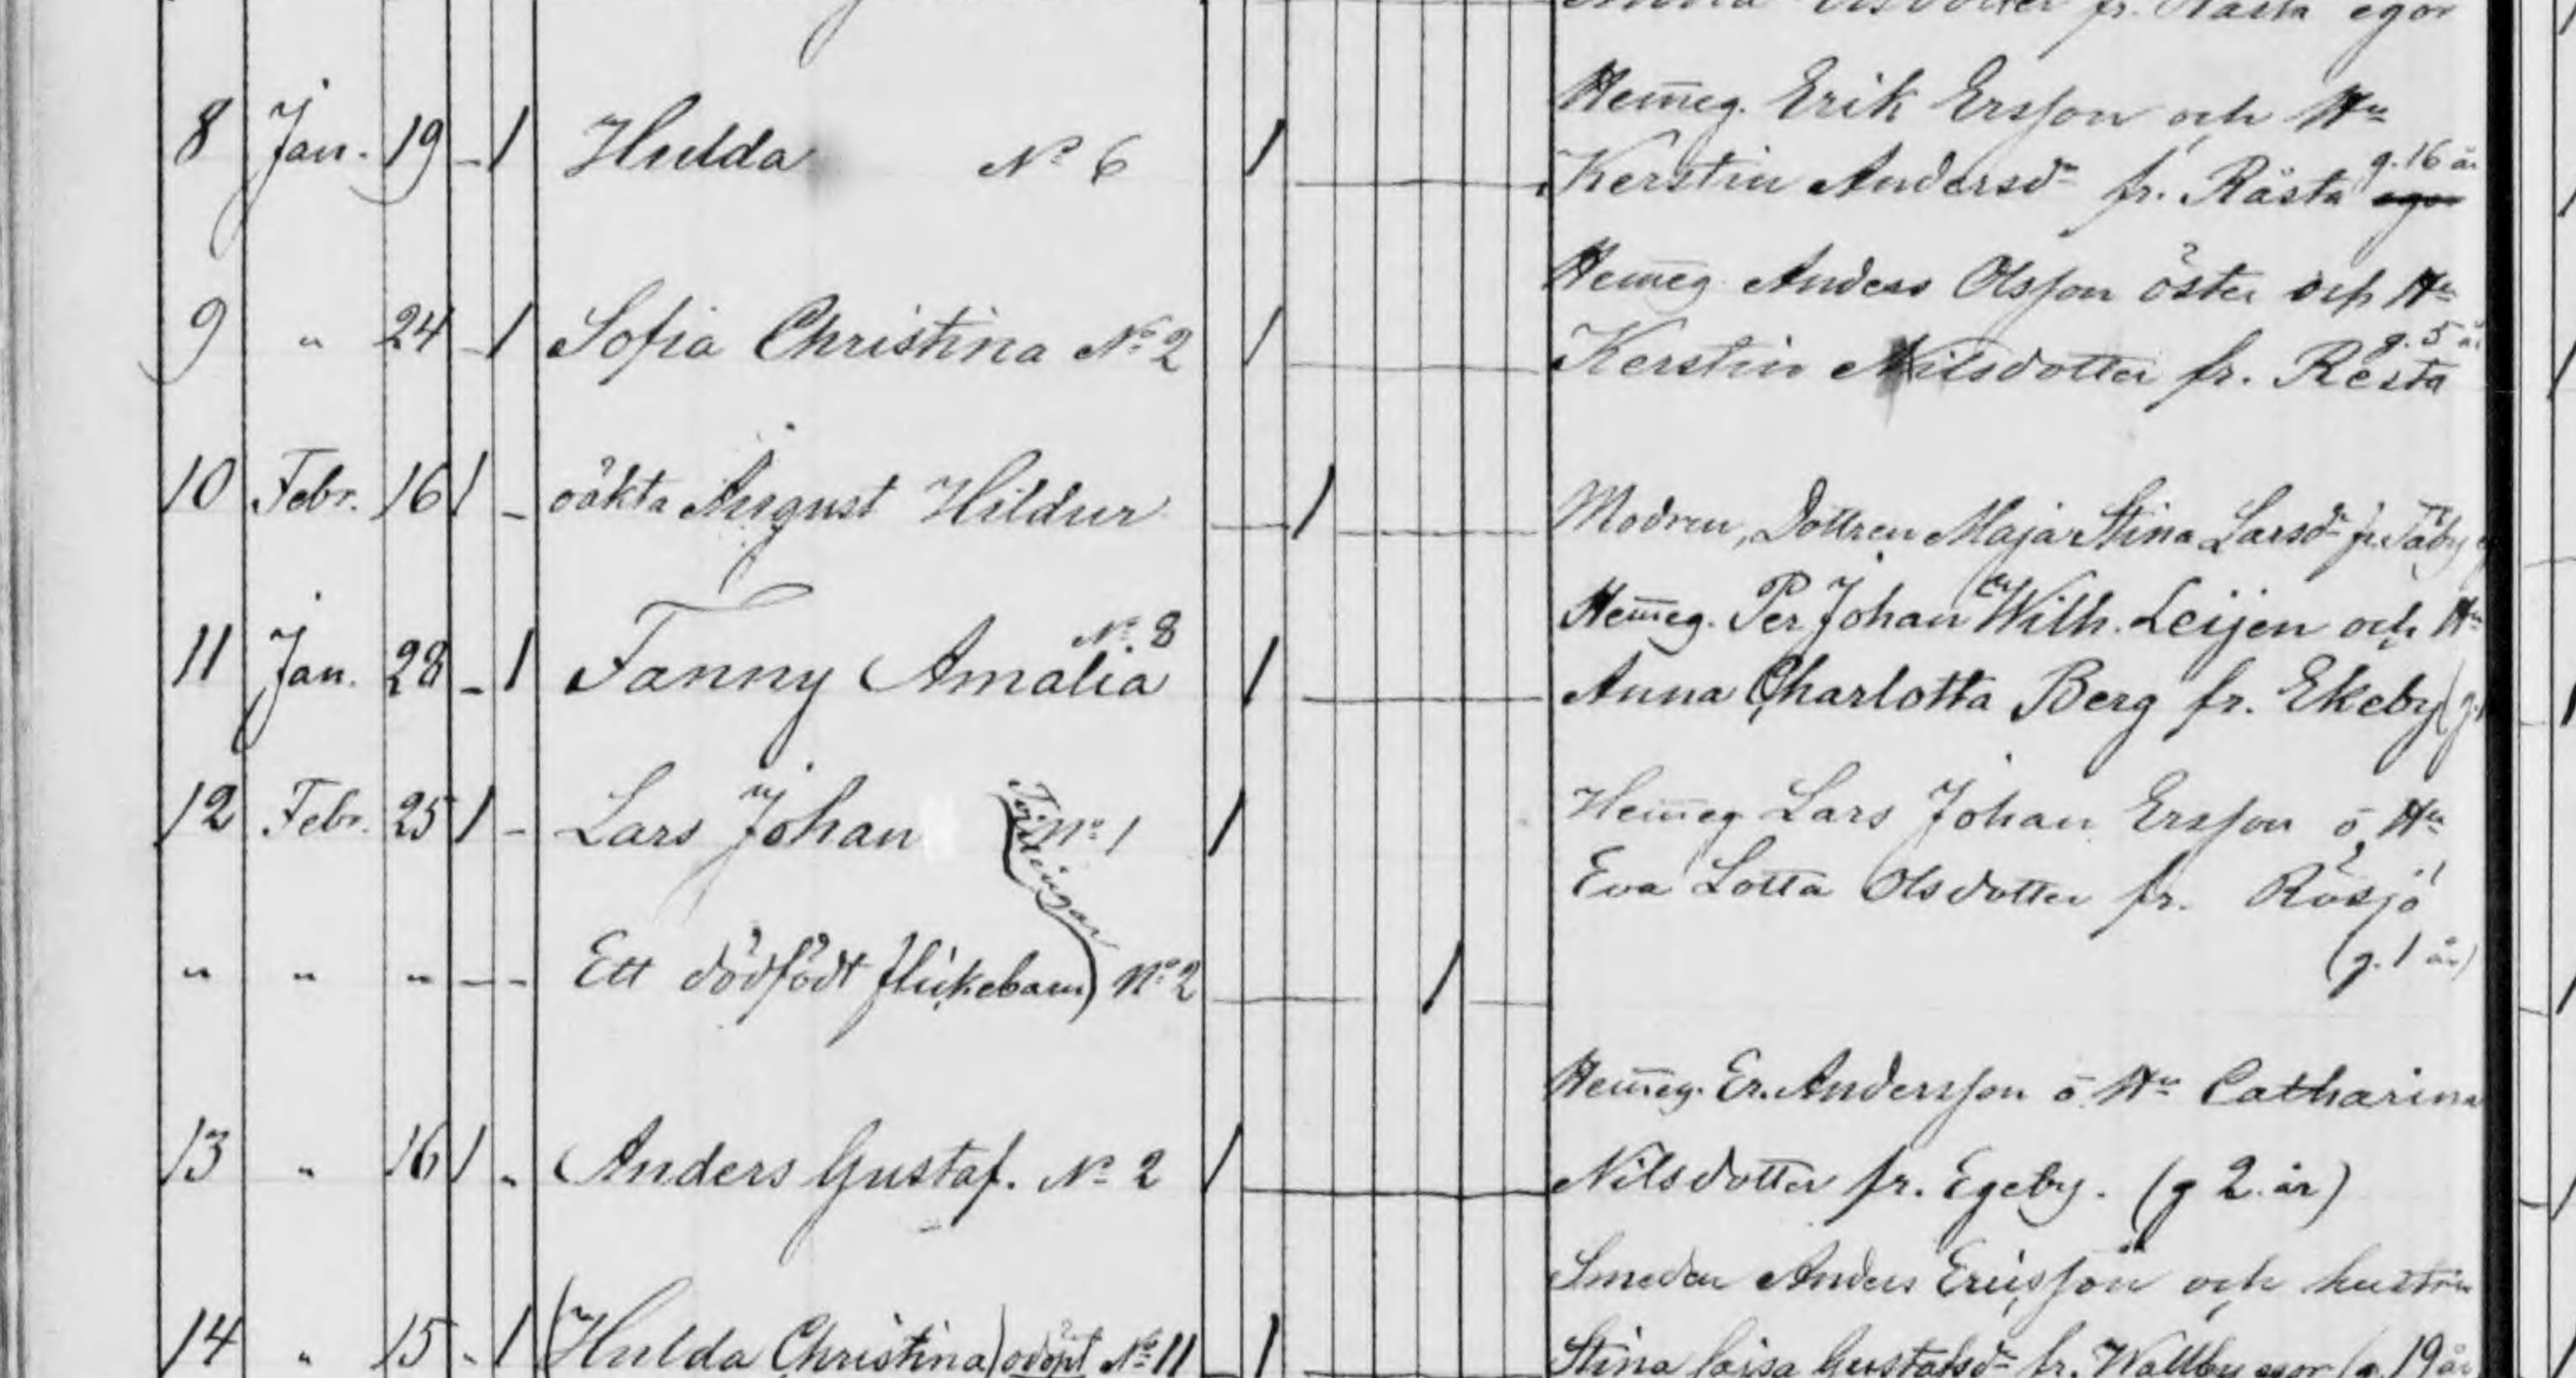 fr. Rästa egor
Hemeg. Erik Ersson och Hu
8 Jan. 19 - 1 Hulda No 6 1 Kerstin Andersdr fr. Rästa egor g. 16 år
Hemeg Anders Olsson öster och Hu
9 " 24 - 1 Sofia Christina No 2 1 Kerstin Nilsdotter fr. Rästa g. 5 år
10 Febr. 16 1 - oäkta August Hildur 1 Modren, Dottren Maja Stina Larsdr fr. Täby
Hemeg. Per Johan Wilh. Leijen och Hu
11 Jan. 28 - 1 Fanny Amalia No 8 1 Anna Charlotta Berg fr. Ekeby (g.
12 Febr. 25 1 - Lars Johan No 1 1 Hemeg Lars Johan Ersson o Hu
Tvillingar
Eva Lotta Olsdotter fr. Rösjö
(g. 1 år)
" " " - - Ett dödfödt flickebarn) No 2 1
Hemeg. Er. Andersson o Hu Catharina
13 " 16 1 " Anders Gustaf. No 2 1 Nilsdotter fr. Egeby. (g 2. år)
Smeden Anders Ericsson och hustrun
14 " 15 - 1 (Hulda Christina) odöpt No 11 1 Stina Cajsa Gustafsdr fr. Wallby egor (g. 19 år